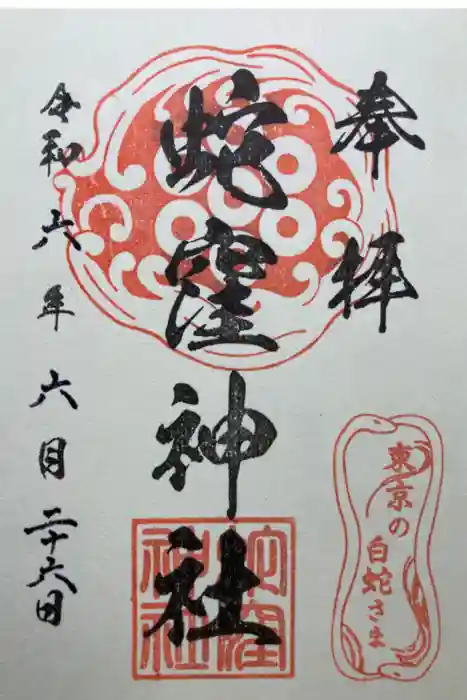 奉拝
東京の白蛇さま
蛇窪神社
蛇窪神社
令和六年六月二十六日